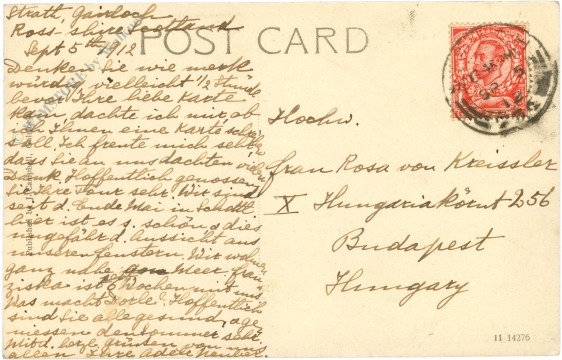 Strath, Gairloch
Ross-shire Scotland
Sept 5th 1912
POST CARD
Denken Sie wie merk
würdig vielleicht 1/2 Stunde
bevor Ihre liebe Karte
kam, dachte ich mir, ob
ich Ihnen eine Karte
soll. Ich freute mich sehr
dass Sie an uns dachten vielen
Dank. Hoffentlich genossen
Sie Ihre Tour sehr. Wir sind
seit d. Ende Mai in Schottl
hier ist es s. schön, dies
ungefähr d. Aussicht aus
unseren Fenstern. Wir wohnen
ganz nahe Meer. Fran
ziska ist 6 Wochen mit uns
Was macht Dorle? Hoffentlich
sind Sie alle gesund, &
niessen den Sommer sehr
Mit d. herzl. grüssen von uns
allen Ihre Adele
Published by J.
Hochw.
frau Rosa von Kreissler
X Hungariakörnt 256
Budapest
Hungary
11 14276